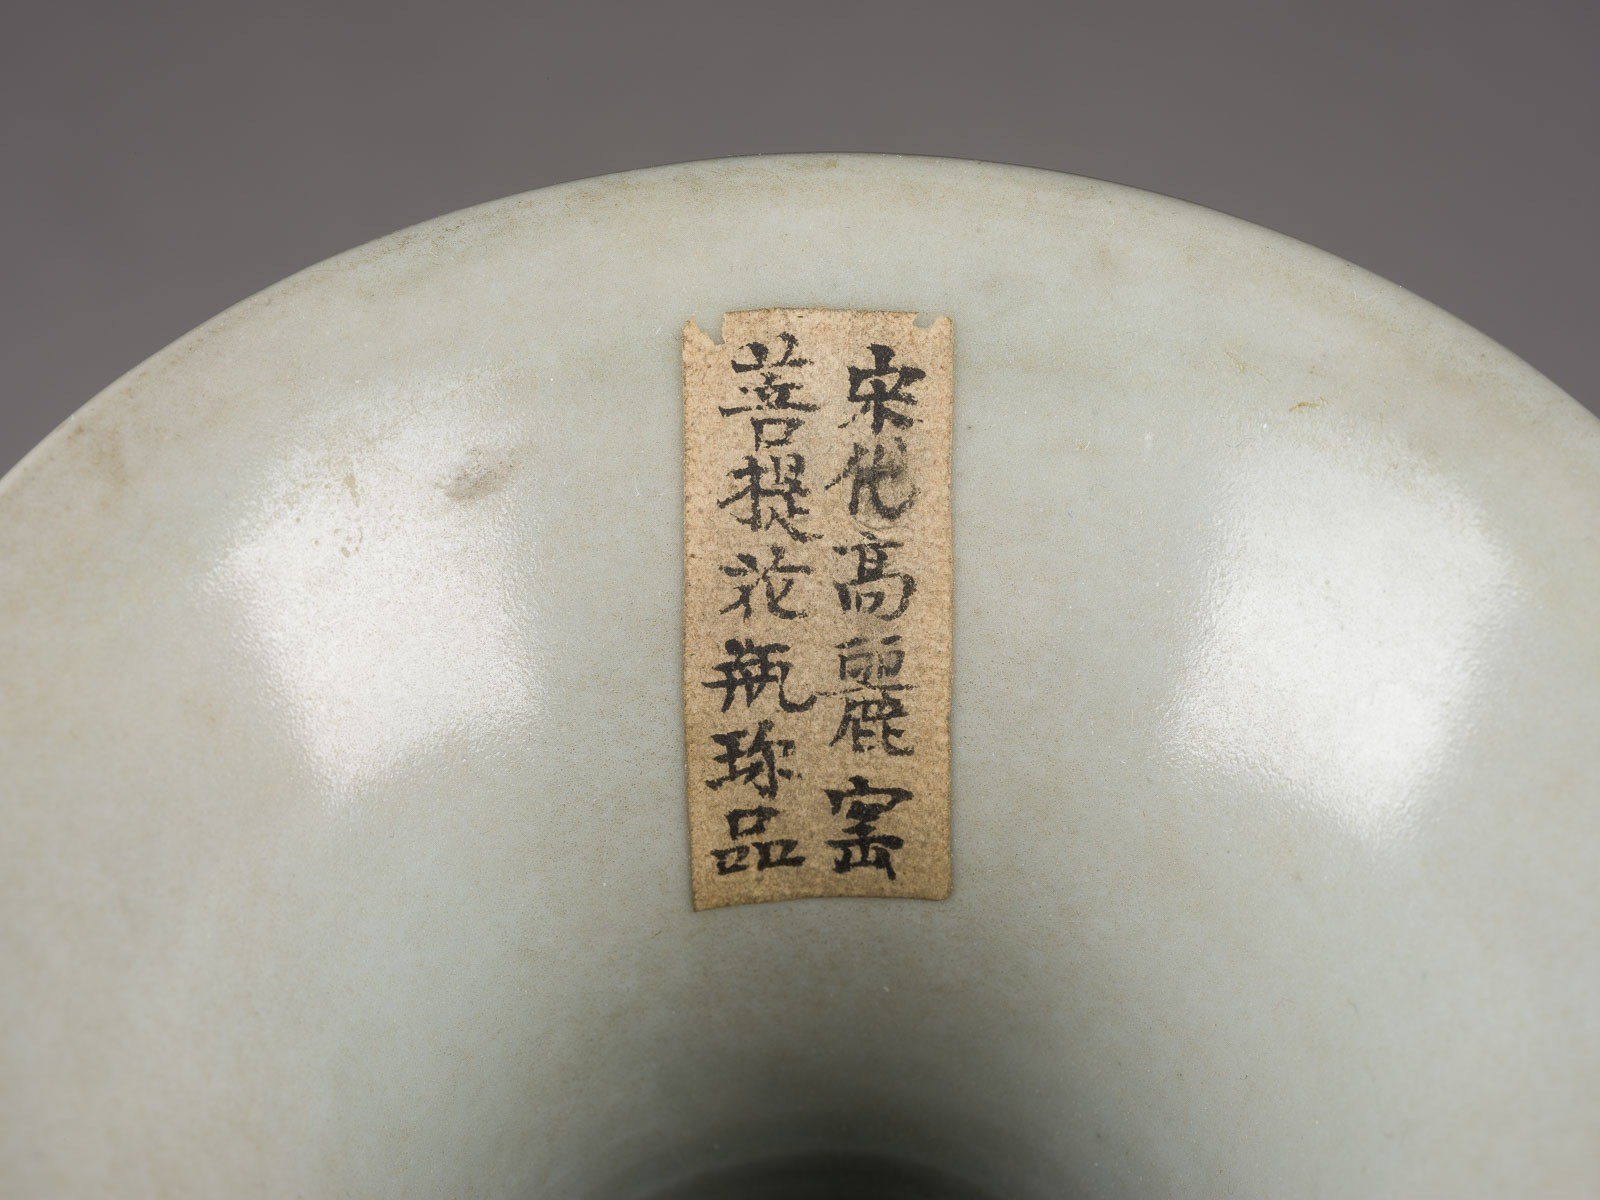 宋代高麗窑
菩提花瓶珎品